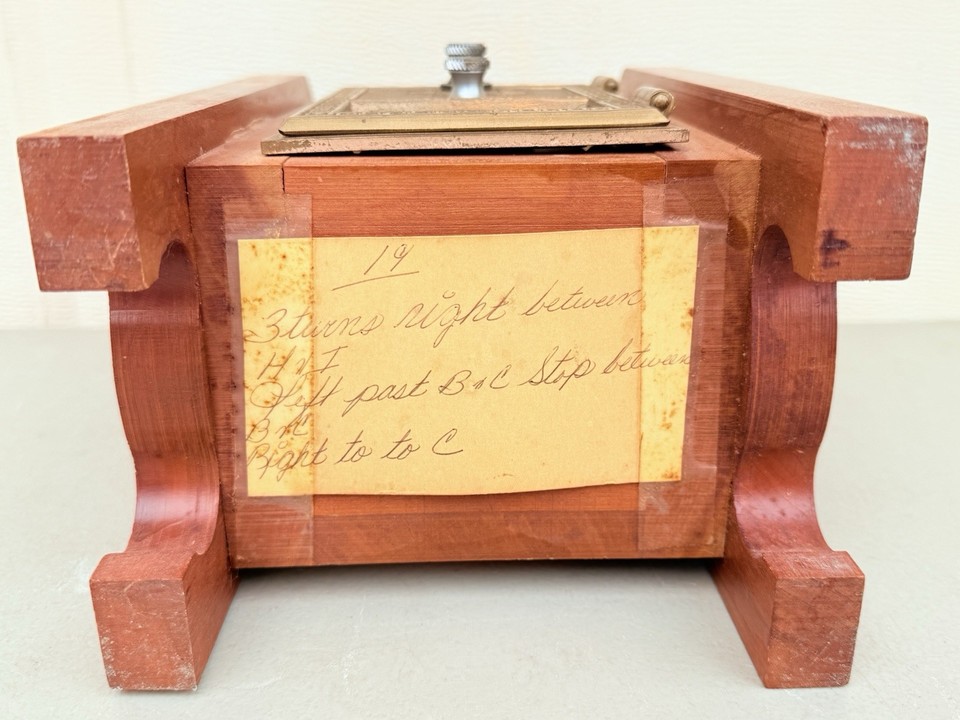 19
3 turns right between
H n I
left past B n C Stop between
B n C
Right to to C